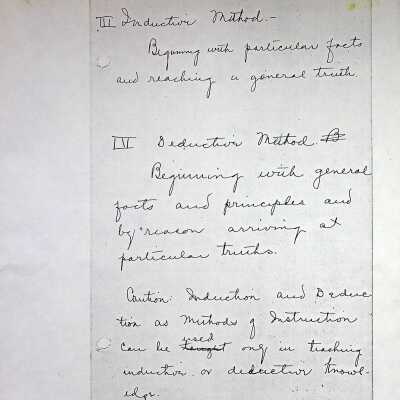 III Inductive Method.-
Beginning with particular facts
and reaching a general truth.
IV Deductive Method.
Beginning with general
facts and principles and
by reason arriving at
particular truths.
Caution: Induction and Deduc-
tion as Methods of Instruction
used
can be taught only in teaching
inductive or deductive knowl-
edge.